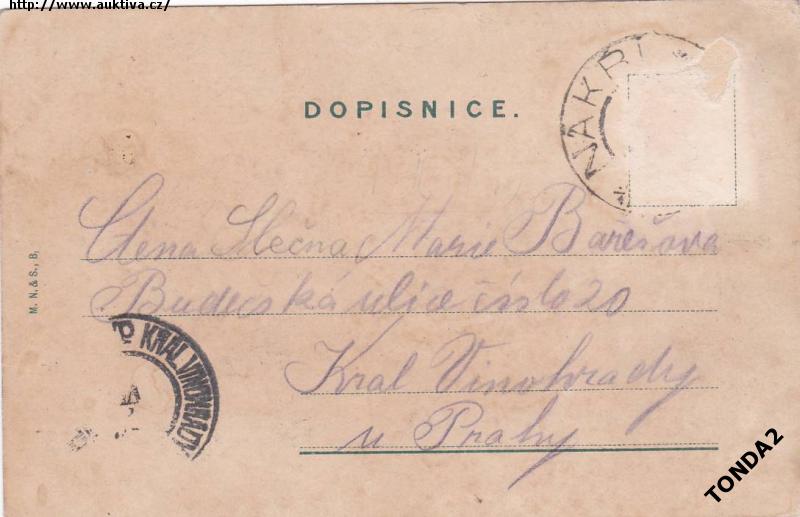 http://www.auktiva.cz/
NAKŘI
DOPISNICE.
Ctěna Slečna Marie Bařešova
Budečská ulice číslo 20
Kral Vinohrady
u Prahy
M. N. & S., B.
KRÁL. VINOHRADY
TONDA2